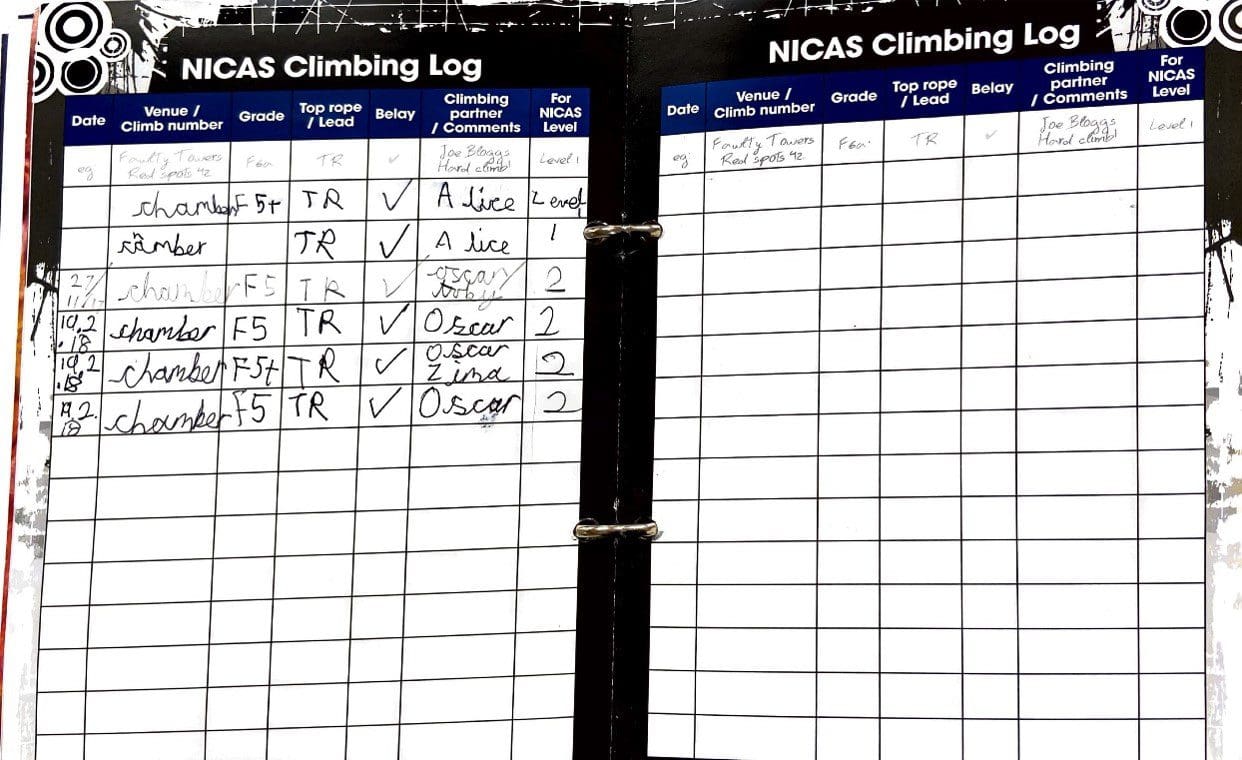 NICAS Climbing Log
Date Venue / Climb number Grade Top rope / Lead Belay Climbing partner / Comments For NICAS Level
eg Faulty Towers Red spots 42 F6a TR ✓ Joe Bloggs Hard climb! Level 1
chamber F5+ TR ✓ Alice Level 1
camber TR ✓ Alice 1
27/11/17 chamber F5 TR ✓ oscar/ toby 2
19.2.18 chamber F5 TR ✓ Oscar 2
19.2.18 chamber F5+ TR ✓ Oscar Zima 2
19.2.18 chamber F5 TR ✓ Oscar 2
NICAS Climbing Log
Date Venue / Climb number Grade Top rope / Lead Belay Climbing partner / Comments For NICAS Level
eg Faulty Towers Red spots 42 F6a TR ✓ Joe Bloggs Hard climb! Level 1